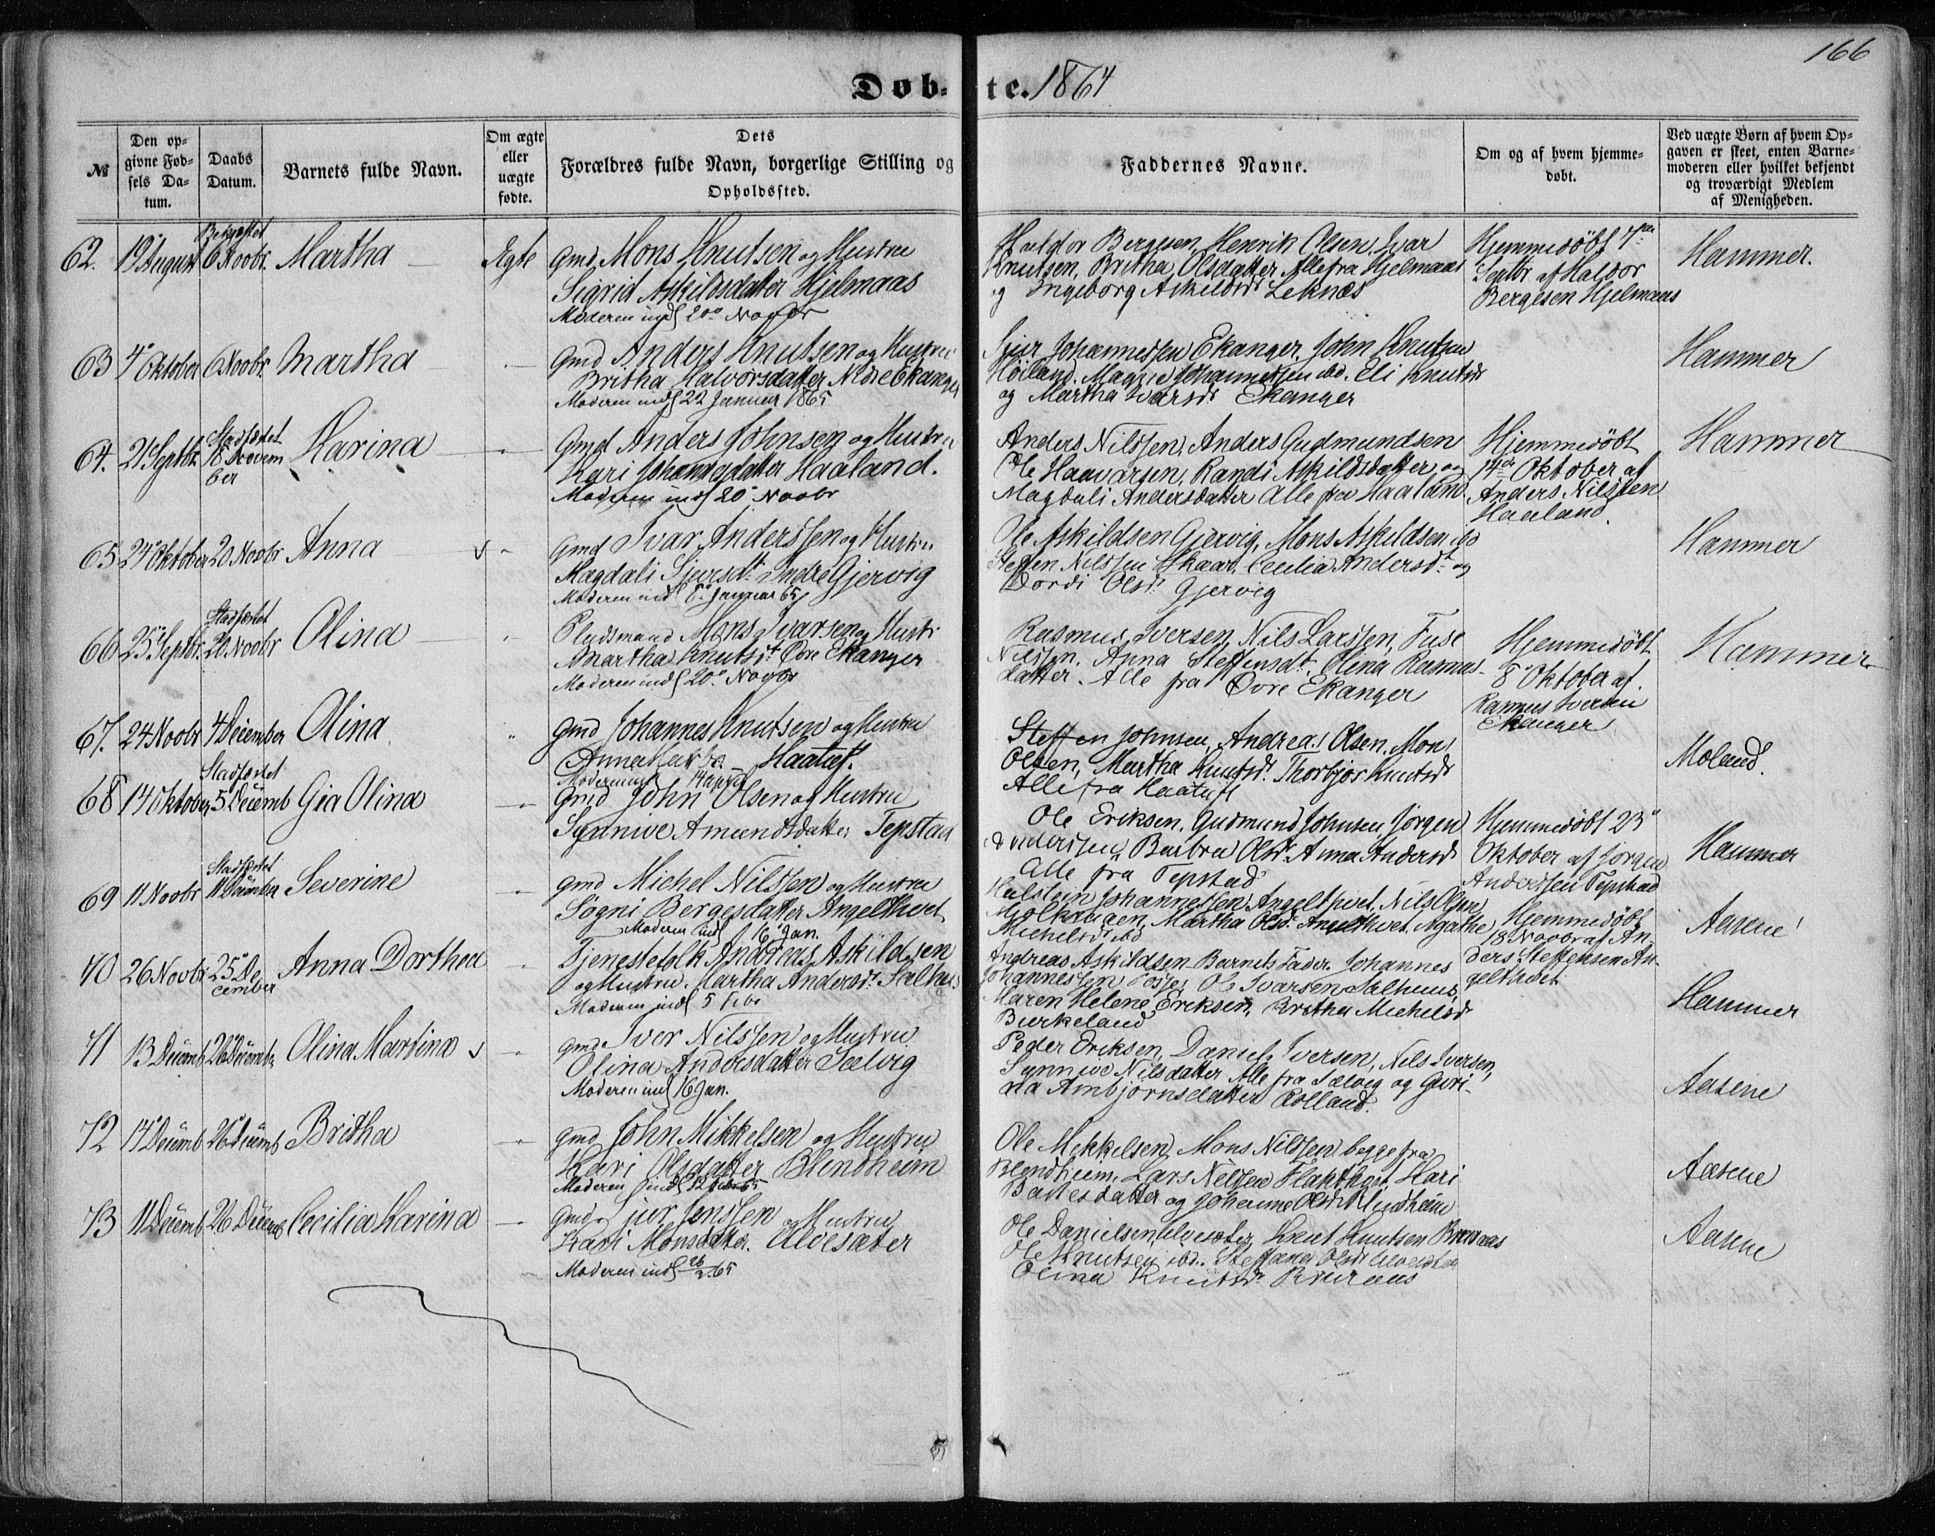 166
Døb-te. 1864
№
Den op-
givne Fød-
sels Da-
tum.
Daabs
Datum.
Barnets fulde Navn.
Om ægte
eller
uægte
fødte.
Dets
Forældres fulde Navn, borgerlige Stilling og
Opholdssted.
Faddernes Navne.
Om og af hvem hjemme-
døbt.
Ved uægte Børn af hvem Op-
gaven er skeet, enten Barne-
moderen eller hvilket bekjendt
og troværdigt Medlem
af Menigheden.
62. 19 August 6 Novbr. Martha Ægte
Gmd Mons Knutsen og Hustru
Sigrid Askildsdatter Hjelmaas
Moderen indl 20 Novbr
Haldor Bergesen, Henrik Olsen, Ivar
Knutsen, Britha Olsdatter Alle fra Hjelmaas
og Ingeborg Askildsdr Leknæs
Hjemmedøbt 7
Septbr af Haldor
Bergesen Hjelmaas
Hammer.
63 4 Oktober 6 Novbr. Martha
Gmd Anders Knutsen og Hustru
Britha Halvorsdatter Nedre Ekanger
Moderen indl 22 Januar 1865
Sjur Johannessen Ekanger, John Knutsen
Høiland. Johannessen ibd. Eli Knutsdr
og Martha Ivarsdr Ekanger
Hammer
64. 21 Septbr. Stadfæstet
18 Novem
ber
Karina
Gmd Anders Johnsen og Hustru
Kari Johannesdatter Haaland.
Moderen indl 20 Novbr
Anders Nilssen, Anders Gudmundsen
Ole Haavarsen, Randi Askildsdatter og
Magdali Andersdatter Alle fra Haaland
Hjemmedøbt
14 Oktober af
Anders Nilssen
Haaland.
Hammer
65 24 Oktober 20 Novbr Anna
Gmd Ivar Anderssen og Hustru
Magdali Sjursdtr Indre Gjervig
Moderen indl 8 Januar 65
Ole Askildsen Gjervig, Mons Askildsen ibd
Steffen Nilssen Skaar, Cecilia Andersdt og
Dordi Olsdr Gjervig
Hammer
66 25 Septbr. Stadfæstet
20 Novbr
Olina
Pladsmand Mons Ivarsen og Hustr
Martha Knutsdt Øvre Ekanger
Moderen indl 20 Novbr
Rasmus Iversen, Nils Larssen, Fuse
Nilssen, Anna Steffensdt, Olina Rasmus-
datter. Alle fra Øvre Ekanger
Hjemmedøbt
8 Oktober af
Rasmus Iversen
Ekanger
Hammer
67. 24 Novbr 4 December Olina
Gmd Johannes Knutsen og Hustru
Anna Haatuft.
Moderen indl 14 april
Steffen Johnsen, Andreas Olsen, Mons
Olsen, Martha Knutsdr Thorbjør Knutsdr
Alle fra Haatuft
Moland.
68 14 Oktober Stadfæstet
5 Decemb
Gia Olina
Gmd John Olsen og Hustru
Synnive Amundsdatter Tepstad
Ole Eriksen, Gudmund Johnsen, Jørgen
Anderssen, Barbra Olsdr Anna Andersdr
Alle fra Tepstad
Hjemmedøbt 23
Oktober af Jørgen
Anderssen Tepstad
Hammer
69 11 Novbr Stadfæstet
11 December
Severine
Gmd Michel Nilssen og Hustru
Søgni Bergesdatter Angeltvet
Moderen indl 16 Jan.
Halstein Johannessen Angeltvet, Nils Olsen
Mjølkaugen, Martha Olsd. Angeltvet, Agathe
Michelsdr ibd
Hjemmedøbt
18 Novbr af An-
ders Steffensen An-
geltvedt
Aasene
70 26 Novbr 25 De
cember
Anna Dorthea
Tjenestefolk Andreas Askildsen
og Hustru Martha Andersdt. Salhus
Moderen indl 5 Febr
Andreas Askildsen Barnets Fader. Johannes
Johannessen Ole Ivarsen Salhus,
Maren Helene Eriksen, Britha Michelsdr
Birkeland
Hammer
71 13 Decemb 26 Decemb. Olina Martina
Gmd Iver Nilssen og Hustru
Olina Andersdatter Sælvig
Moderen indl 16 Jan.
Peder Eriksen, Daniel Iversen, Nils Iversen,
Synnive Nilsdatter Alle fra Sælvig og Guri-
na Ambjørnsdatter Rolland.
Aasene
72 17 Decemb 26 Decemb Britha
Gmd John Mikkelsen og Hustru
Kari Olsdatter Blindheim
Moderen indl 12 65
Ole Mikkelsen, Mons Nilssen begge fra
Blindheim, Lars Nilssen Flaktvet, Kari
Bakesdatter og Johanne Olsdr Blindheim
Aasene
73 11 Decemb 26 Decemb Cecilia Karina
Gmd Sjur Jenssen og Hustru
Kari Monsdatter. Ulvesæter
Moderen indl 26/2 65
Ole Danielsen Ulvesæter, Knut Knutsen
Ole Knutsen ibd. Olsdr
Olina Knutsdr
Aasene